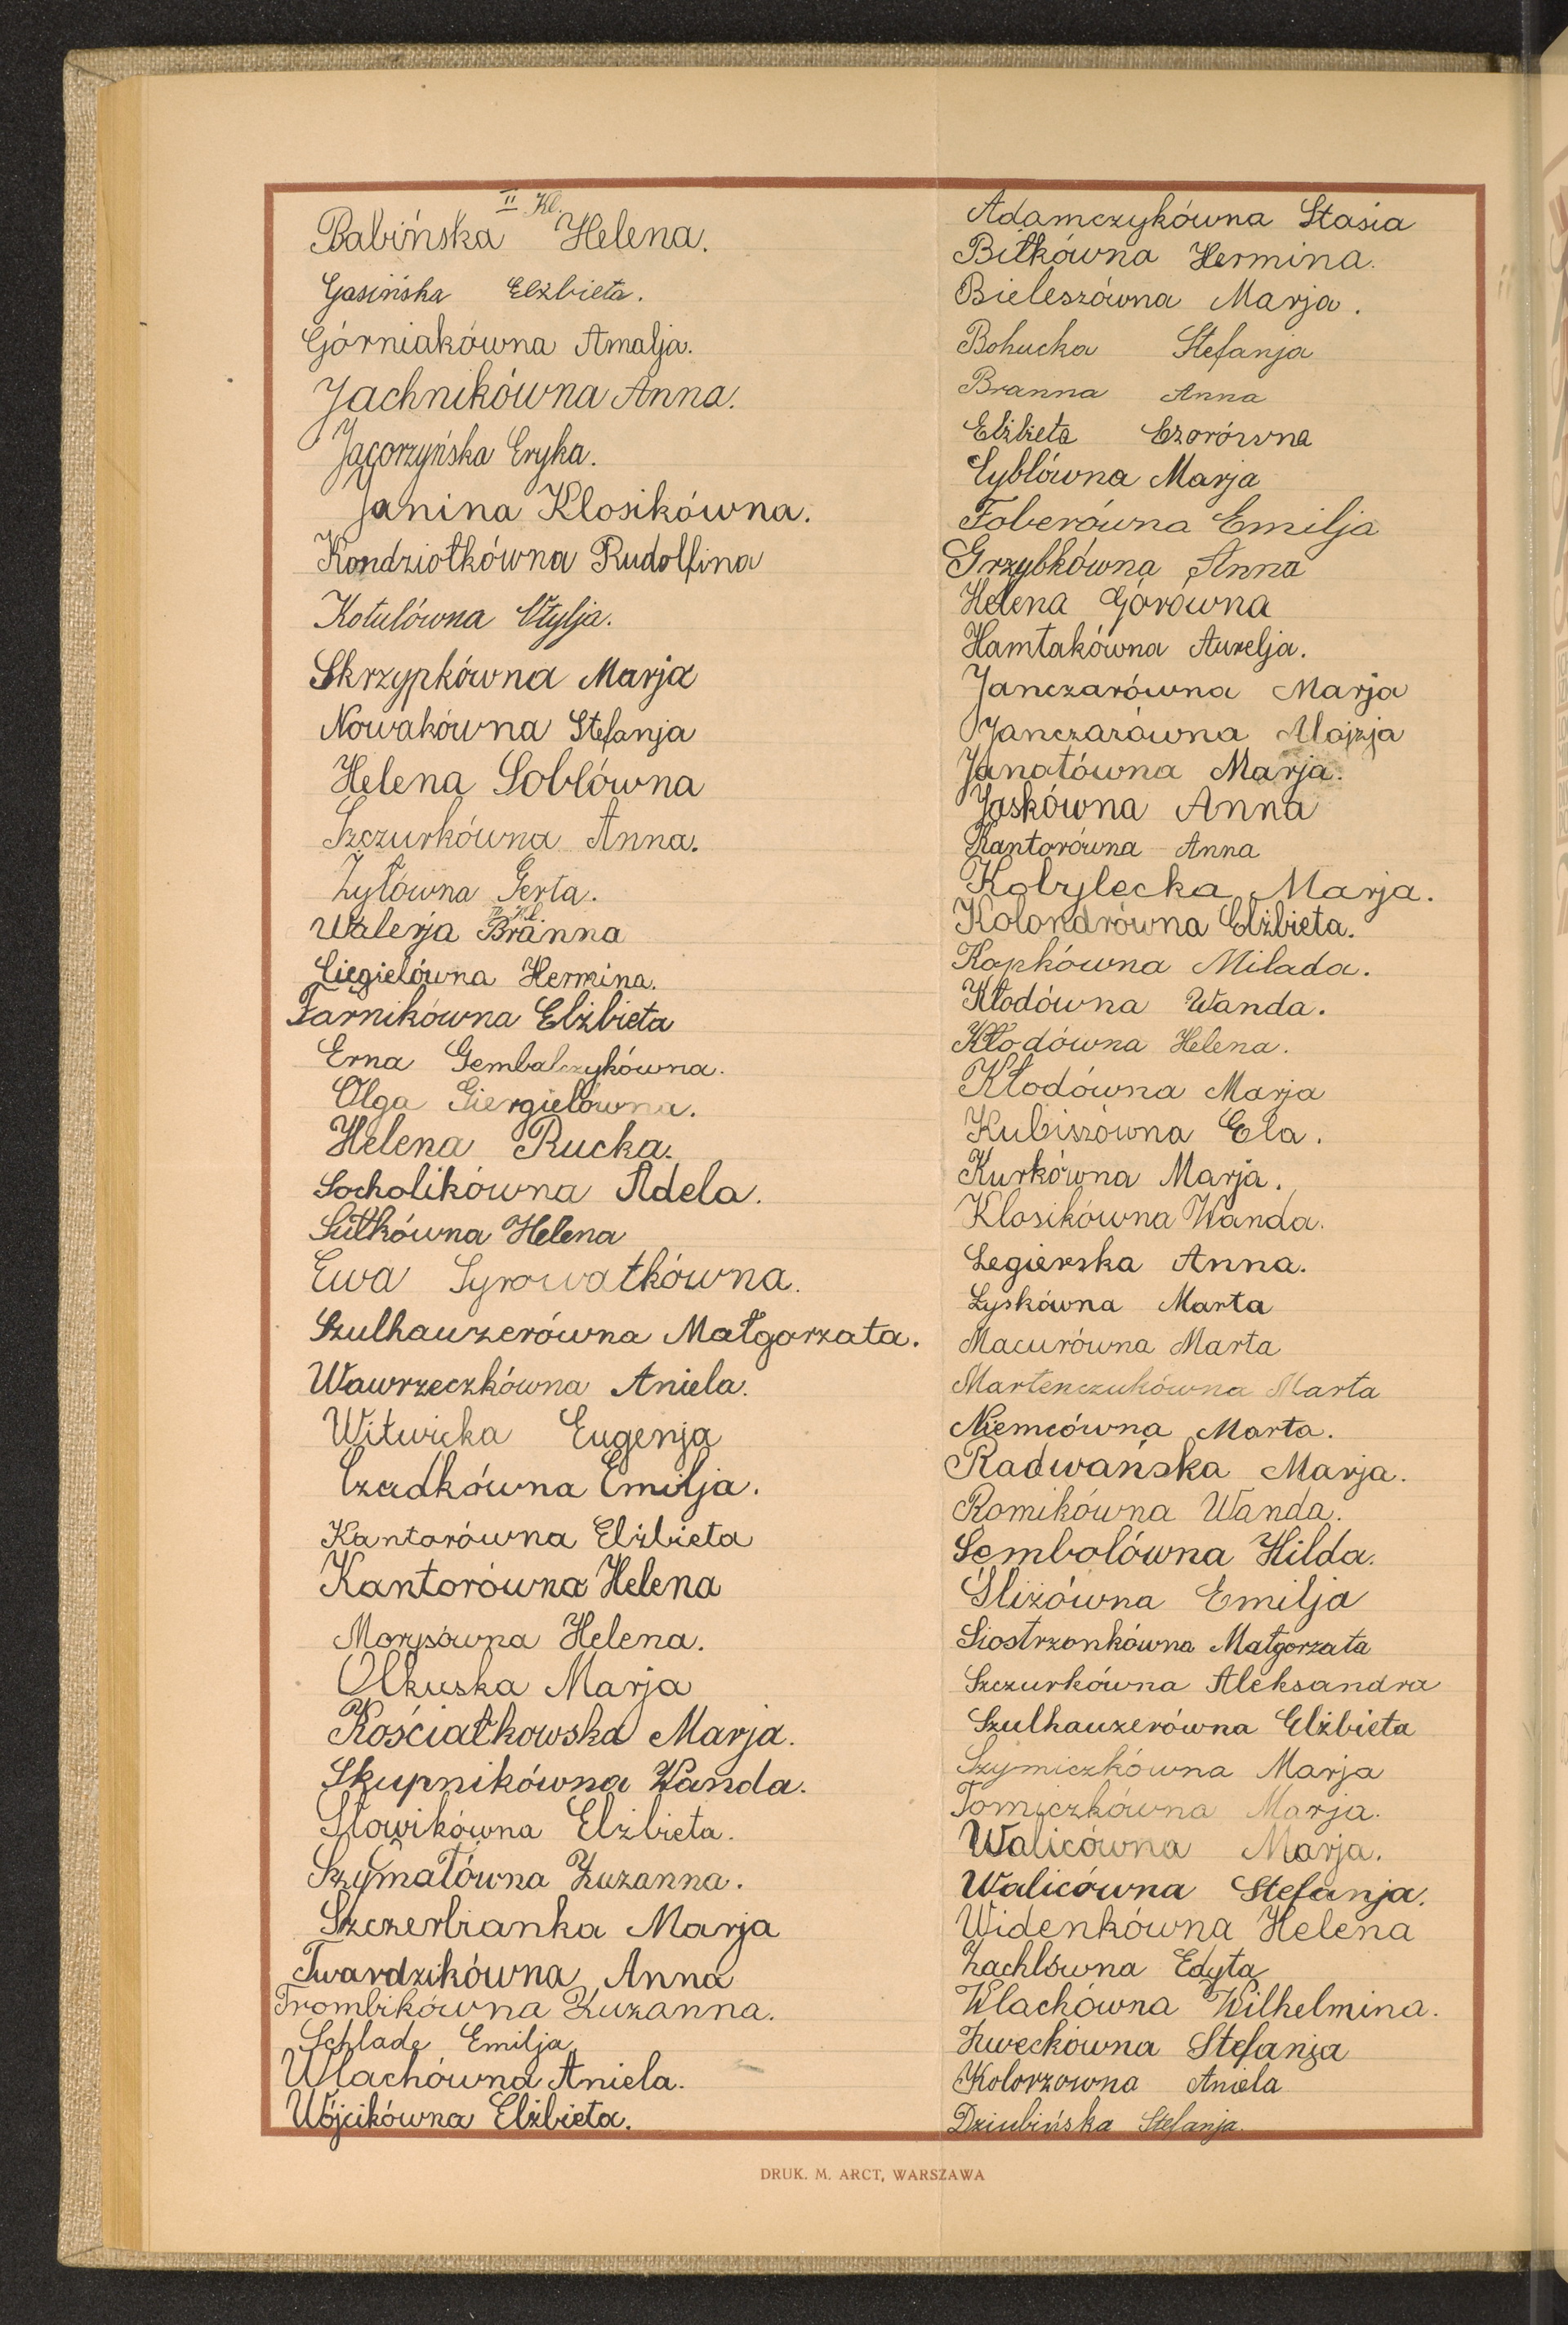 II Kl.
Babińska Helena.
Gasińska Elżbieta.
Górniakówna Amalja.
Jachnikówna Anna.
Jagorzyńska Eryka.
Janina Klosikówna.
Kondziołkówna Rudolfina
Kotulówna Otylja.
Skrzypkówna Marja
Nowakówna Stefanja
Helena Soblówna
Szczurkówna Anna.
Żyłówna Gerta.
Kl.
Walerja Branna
Ciegielówna Hermina.
Farnikówna Elżbieta
Erna Gembalczykówna.
Olga Giergielówna.
Helena Rucka.
Socholikówna Adela.
Sutkówna Helena
Ewa Syrowatkówna.
Szulhauzerówna Małgorzata.
Wawrzeczkówna Aniela.
Witwicka Eugenja
Czadkówna Emilja.
Kantorówna Elżbieta
Kantorówna Helena
Morysówna Helena.
Olkuska Marja
Kościałkowska Marja.
Skupnikówna Wanda.
Słowikówna Elżbieta.
Szymałówna Zuzanna.
Szczerbianka Marja
Twardzikówna Anna
Trombikówna Zuzanna.
Schlade Emilja
Wlachówna Aniela.
Wójcikówna Elżbieta.
Adamczykówna Stasia
Bitkówna Hermina.
Bieleszówna Marja.
Bohucka Stefanja
Branna Anna
Elżbieta Czorówna
Cyblówna Marja
Foberówna Emilja
Grzybkówna Anna
Helena Górówna
Hamtakówna Aurelja.
Janczarówna Marja
Janczarówna Alojzja
Janotówna Marja.
Jaskówna Anna
Kantorówna Anna
Kobylecka Marja.
Kolondrówna Elżbieta.
Kopkówna Milada.
Kłodówna Wanda.
Kłodówna Helena.
Kłodówna Marja
Kubiszówna Ela.
Kurkówna Marja.
Klosikówna Wanda.
Legierska Anna.
Łyskówna Marta
Macurówna Marta
Martenczukówna Marta
Niemcówna Marta.
Radwańska Marja.
Romikówna Wanda.
Sembolówna Hilda.
Śliżówna Emilja
Siostrzonkówna Małgorzata
Szczurkówna Aleksandra
Szulhauzerówna Elżbieta
Szymiczkówna Marja
Tomiczkówna Marja.
Walicówna Marja.
Walicówna Stefanja.
Widenkówna Helena
Zachlówna Edyta
Wlachówna Wilhelmina.
Żweckówna Stefanja
Kolorzowna Aniela
Dziubińska Stefanja.
DRUK. M. ARCT, WARSZAWA